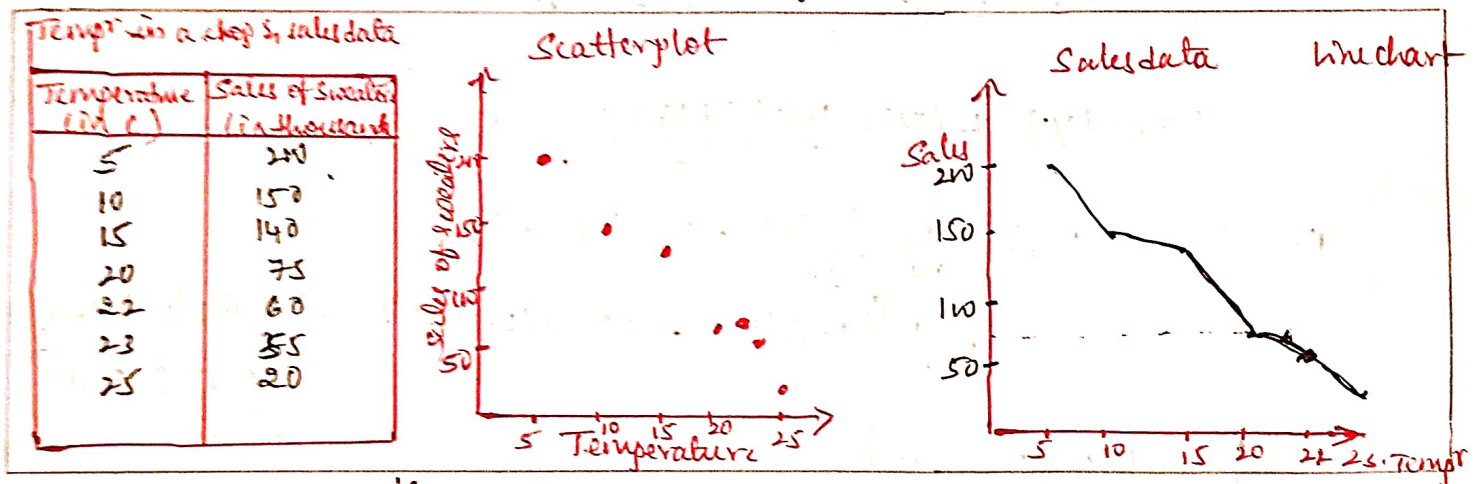 Tempr in a shop & sales data
Temperature Sales of Sweaters
(in C) (in thousand)
5 200
10 150
15 140
20 75
22 60
23 55
25 20
Scatterplot
Sales of sweaters
200
150
100
50
5 10 15 20 25
Temperature
Sales data Line chart
Sales
200
150
100
50
5 10 15 20 22 25 Tempr